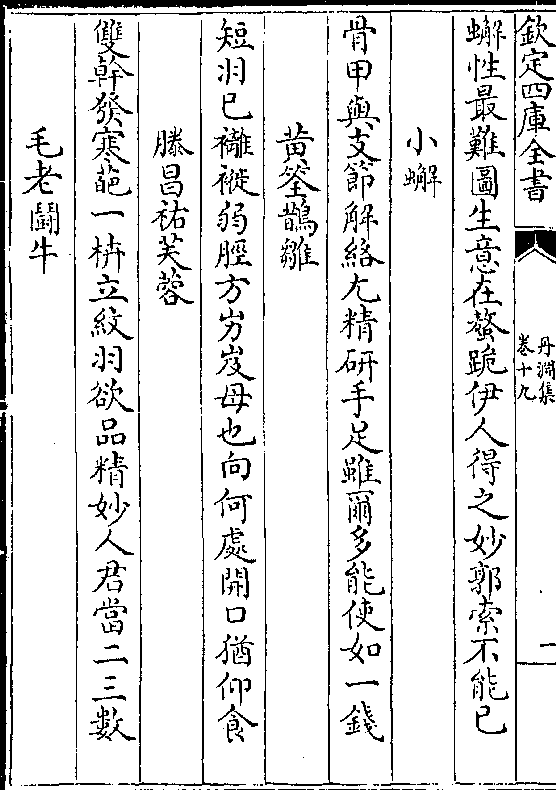 欽定四庫全書
丹淵集
卷十九
一
蠏性最難圖生意在螯跪伊人得之妙郭索不能已
小蠏
骨甲與支節解絡尤精研手足雖爾多能使如一錢
黃筌鵲雛
短羽已襳褷弱脛方屴岌母也向何處開口猶仰食
滕昌祐芙蓉
雙幹發寒葩一枿立紋羽欲品精妙人君當二三數
毛老鬬牛